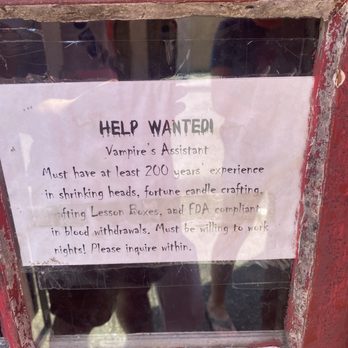 HELP WANTED!
Vampire's Assistant
Must have at least 200 years' experience
in shrinking heads, fortune candle crafting,
Lesson Boxes, and FDA compliant
in blood withdrawals. Must be willing to work
nights! Please inquire within.